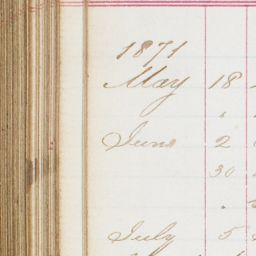 1871
May 18
"
June 2
30
"
July 5